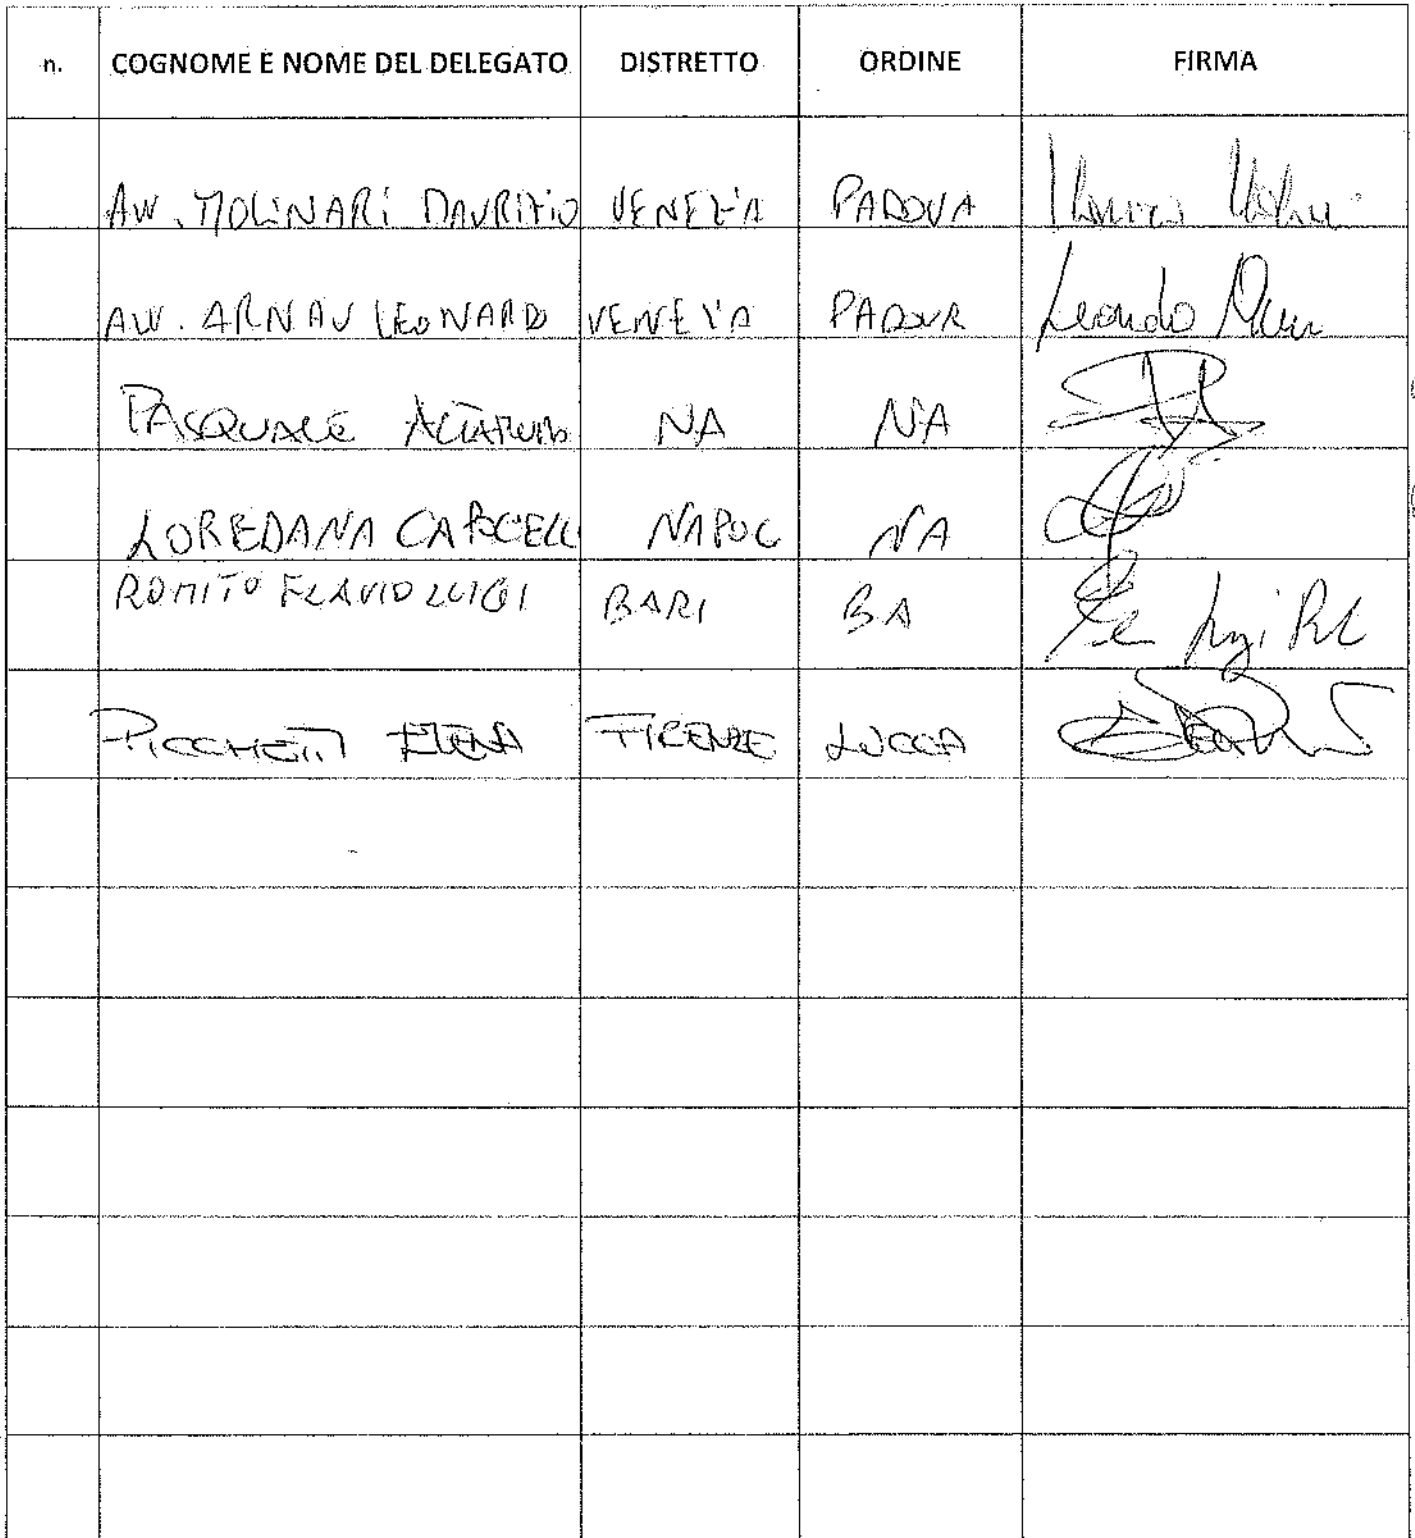 n. COGNOME E NOME DEL DELEGATO DISTRETTO ORDINE FIRMA
AVV. MOLINARI MAURIZIO VENEZIA PADOVA
AVV. ARNAU LEONARDO VENEZIA PADOVA Leonardo
PASQUALE NA NA
LOREDANA CAPOCELLI NAPOLI NA
ROMITO FLAVIO LUIGI BARI BA
PICCHETTI ELENA FIRENZE LUCCA